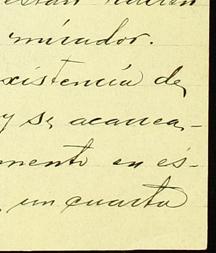 están
mirador.
xistencia de
y se acanea,-
mento en és-
un cuarto